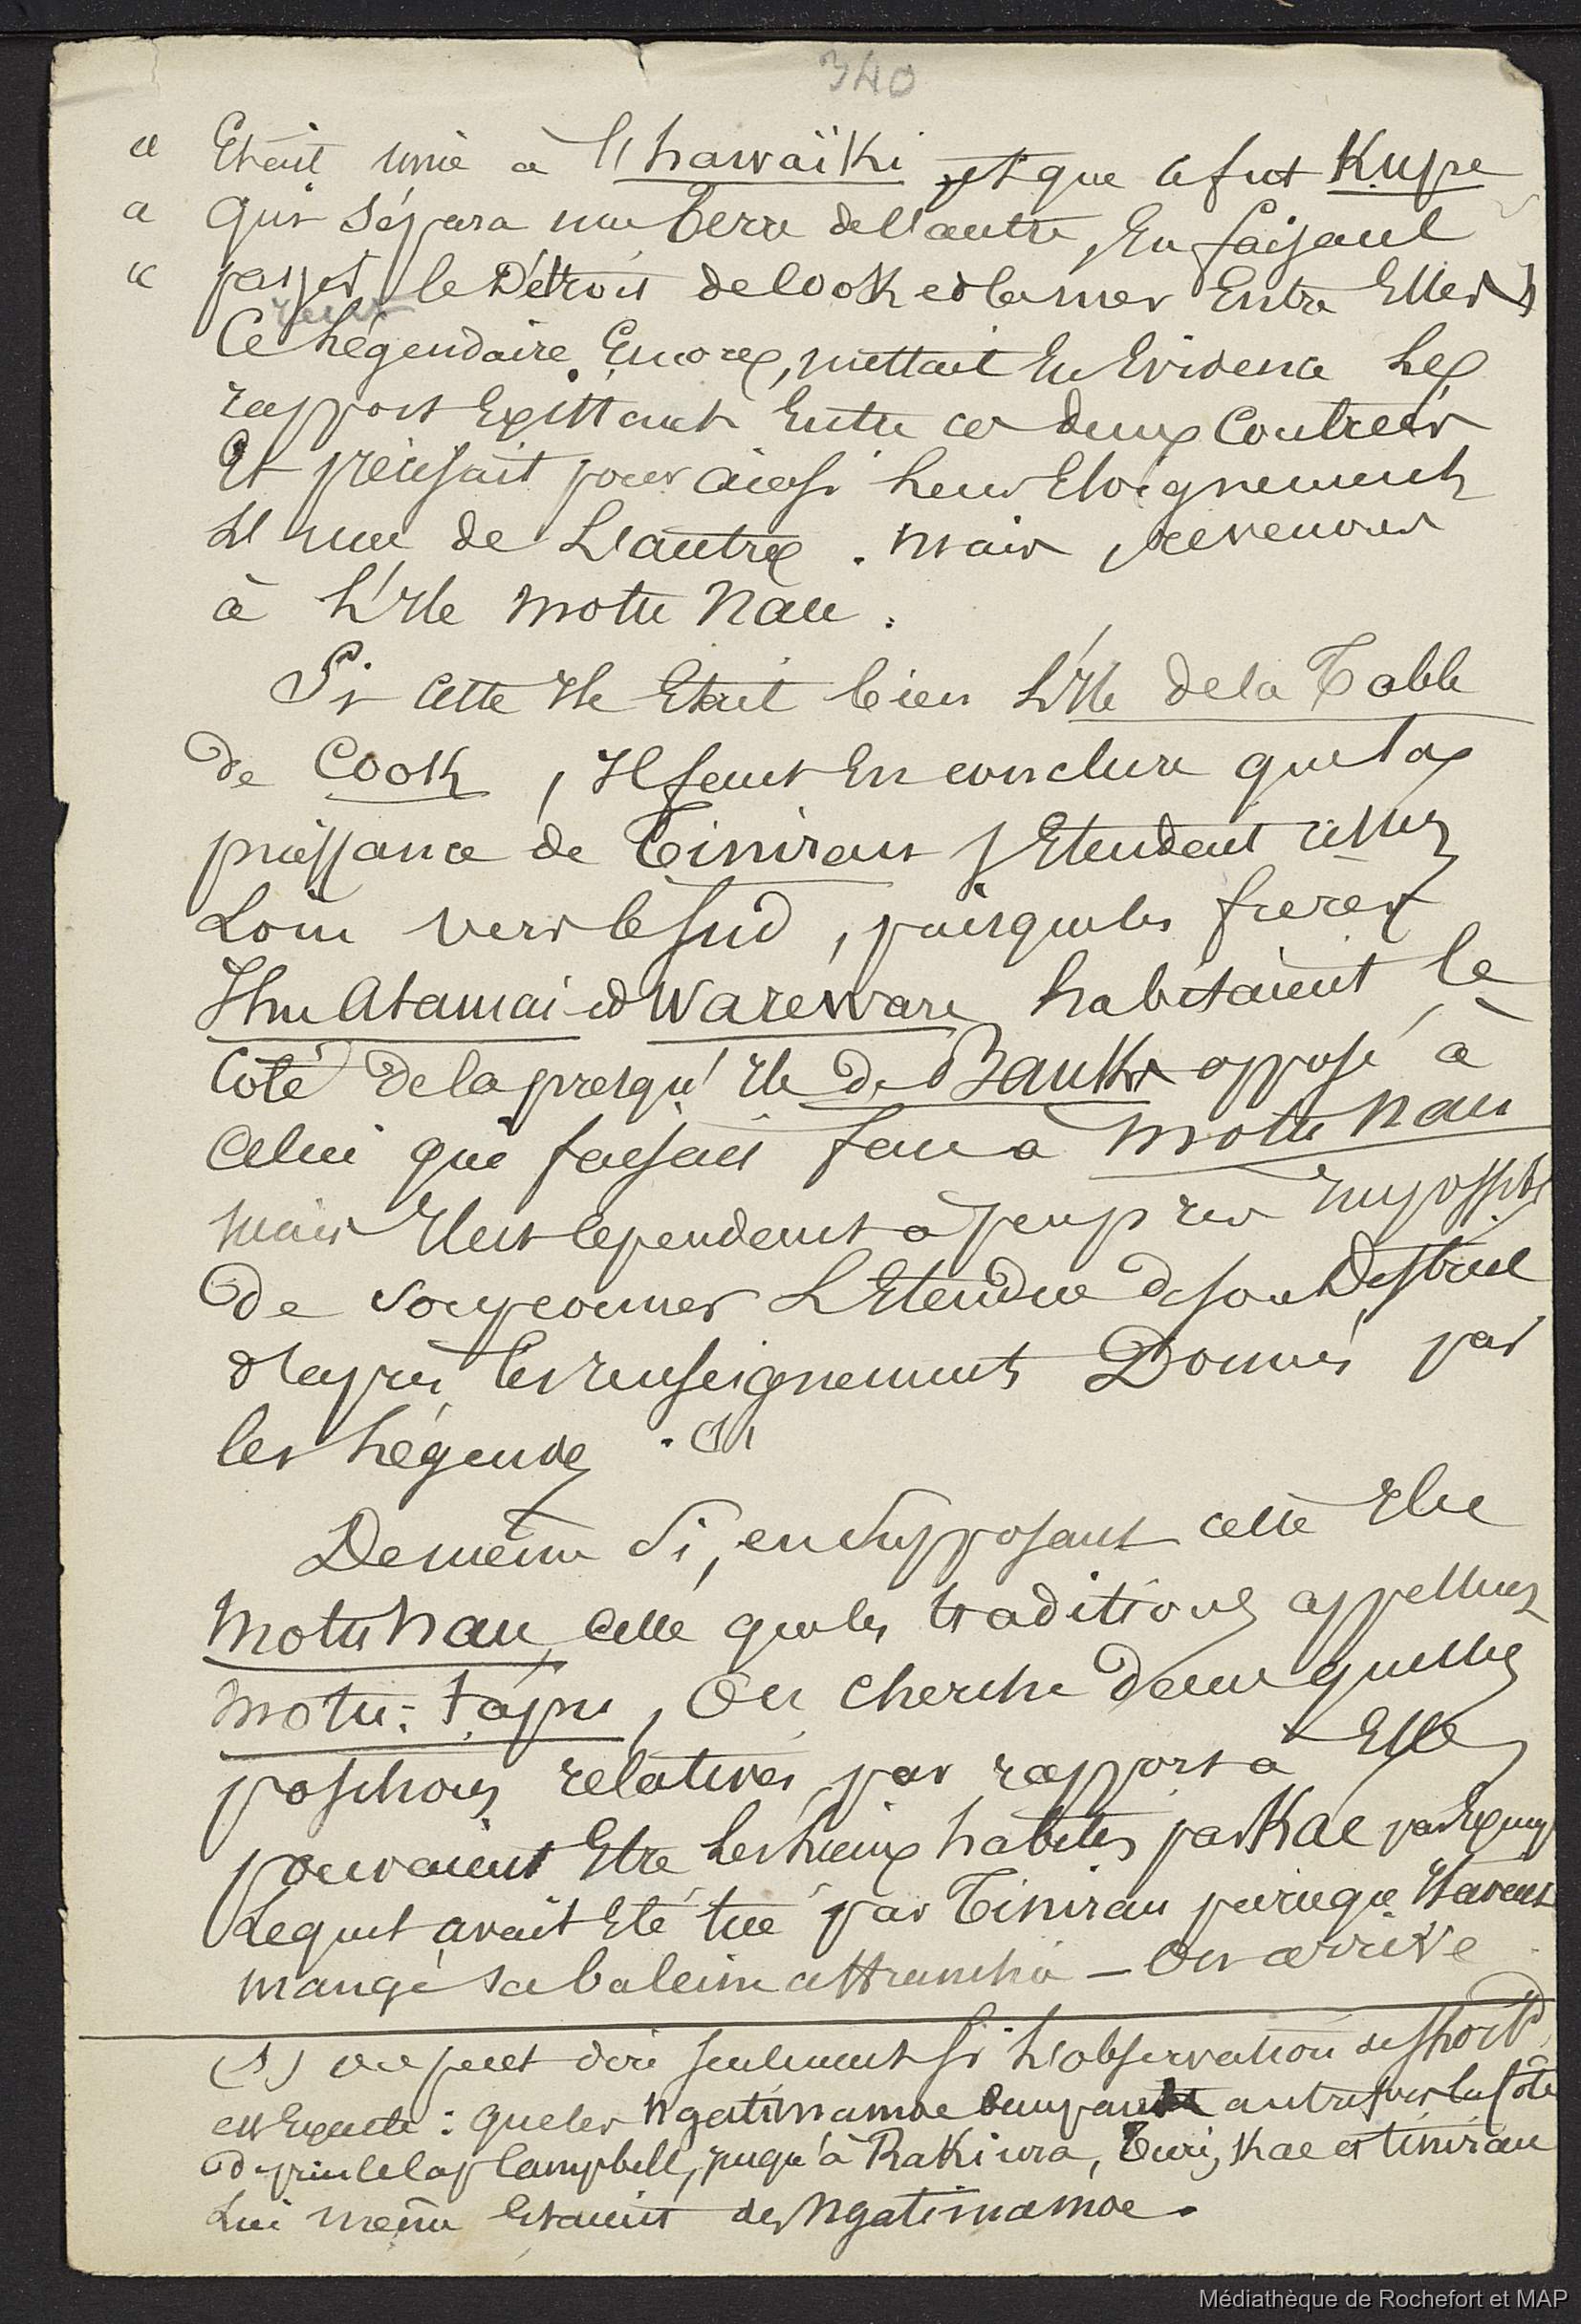 340
« Était unie à l'hawaïki et que ce fut Kupe
« qui sépara une terre de l'autre, En faisant
« passer le Détroit de Cook et la mer Entre Elles »
Ce Légendaire Encore, mettait En Evidence Les
rapports Existants Entre ces deux Contrées
Et précisait pour ainsi Leur Eloignement
L'une de L'autre. mais revenons
à L'Ile Motu Nau.
Si cette Ile Etait bien L'Ile de la Table
de Cook, Il faut En conclure que la
puissance de Tinirau s'Etendait assez
Loin vers le Sud, puisque les frères
Ihu Atamai et Wareware habitaient le
Côté de la presqu'Ile de Banks opposé à
Celui qui faisait face à Motu Nau
mais Il est cependant à peu près Impossible
de soupçonner L'Etendue de son District
d'après les renseignements Donnés par
les Légendes. (1)
De même si, en supposant cette Ile
Motu Nau, celle que les traditions appellent
Motu-tapu, On cherche dans quelles
positions relatives par rapport à Elle
pouvaient Etre Les Lieux habités par Kae par Exemple
Lequel avait Eté tué par Tinirau parce qu'Il avait
mangé sa baleine attranchia — On arrive
(1) On peut dire seulement si L'observation de Short
est Exacte : que les Ngatimamoe occupant autrefois la Côte
depuis le Cap Campbell, jusqu'à Rakiura, Turi, Kae et Tinirau
Lui même Etaient des Ngatimamoe.
Médiathèque de Rochefort et MAP